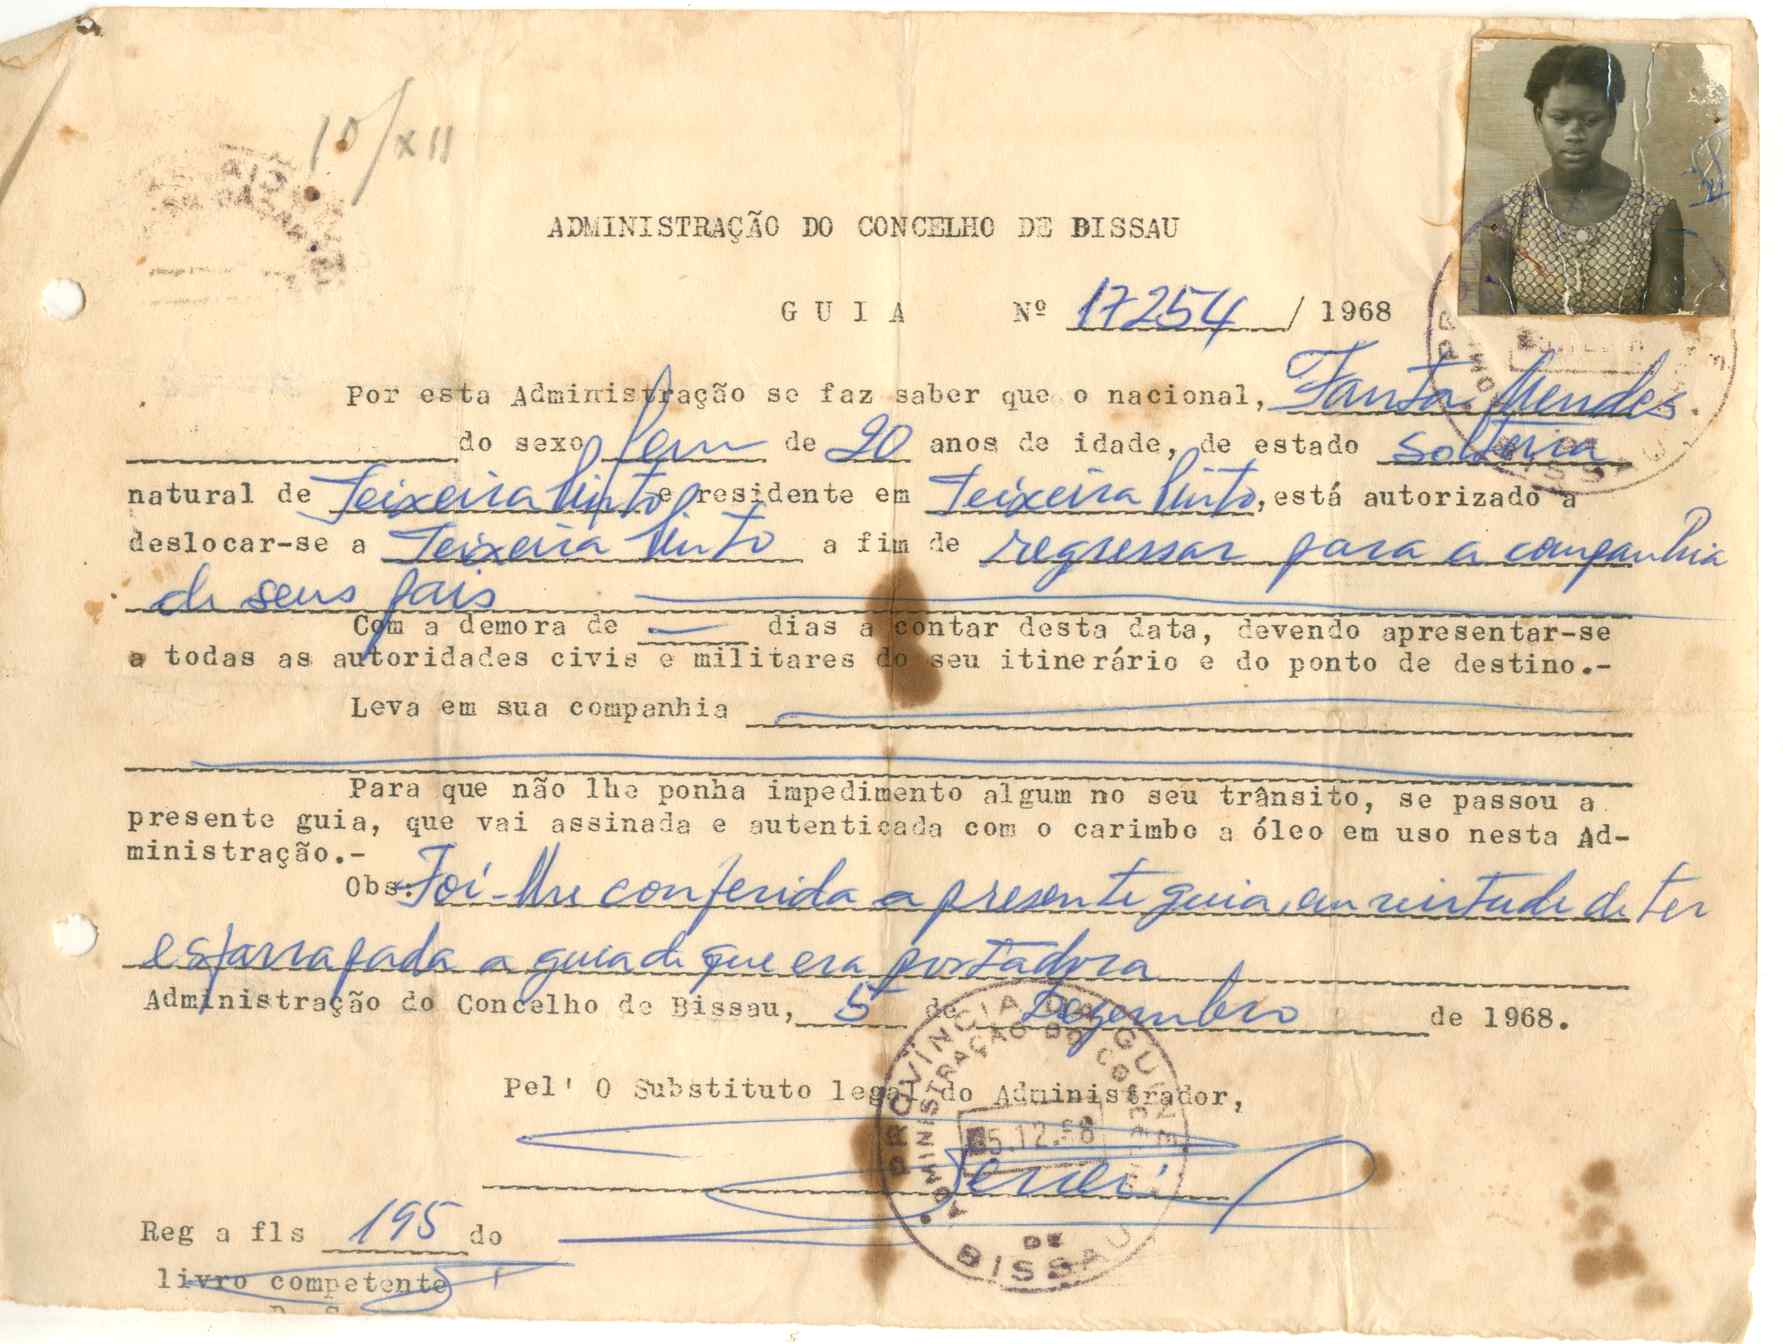 10/XII
ADMINISTRAÇÃO DO CONCELHO DE BISSAU
GUIA Nº 17254 / 1968
Por esta Administração se faz saber que o nacional, Fanta Mendes.
do sexo fem de 20 anos de idade, de estado solteria
natural de Teixeira Pinto e residente em Teixeira Pinto, está autorizado a
deslocar-se a Teixeira Pinto a fim de regressar para a companhia
de seus pais
Com a demora de — dias a contar desta data, devendo apresentar-se
a todas as autoridades civis e militares do seu itinerário e do ponto de destino.-
Leva em sua companhia
Para que não lhe ponha impedimento algum no seu trânsito, se passou a
presente guia, que vai assinada e autenticada com o carimbo a óleo em uso nesta Ad-
ministração.-
Obs: Foi-lhe conferida a presente guia, em virtude de ter
esfarrapada a guia de que era portadora
Administração do Concelho de Bissau, 5 de Dezembro de 1968.
Pel' O Substituto legal do Administrador,
PROVÍNCIA DA GUINÉ
ADMINISTRAÇÃO DO CONCELHO
05.12.68
DE
BISSAU
Reg a fls 195 do
livro competente